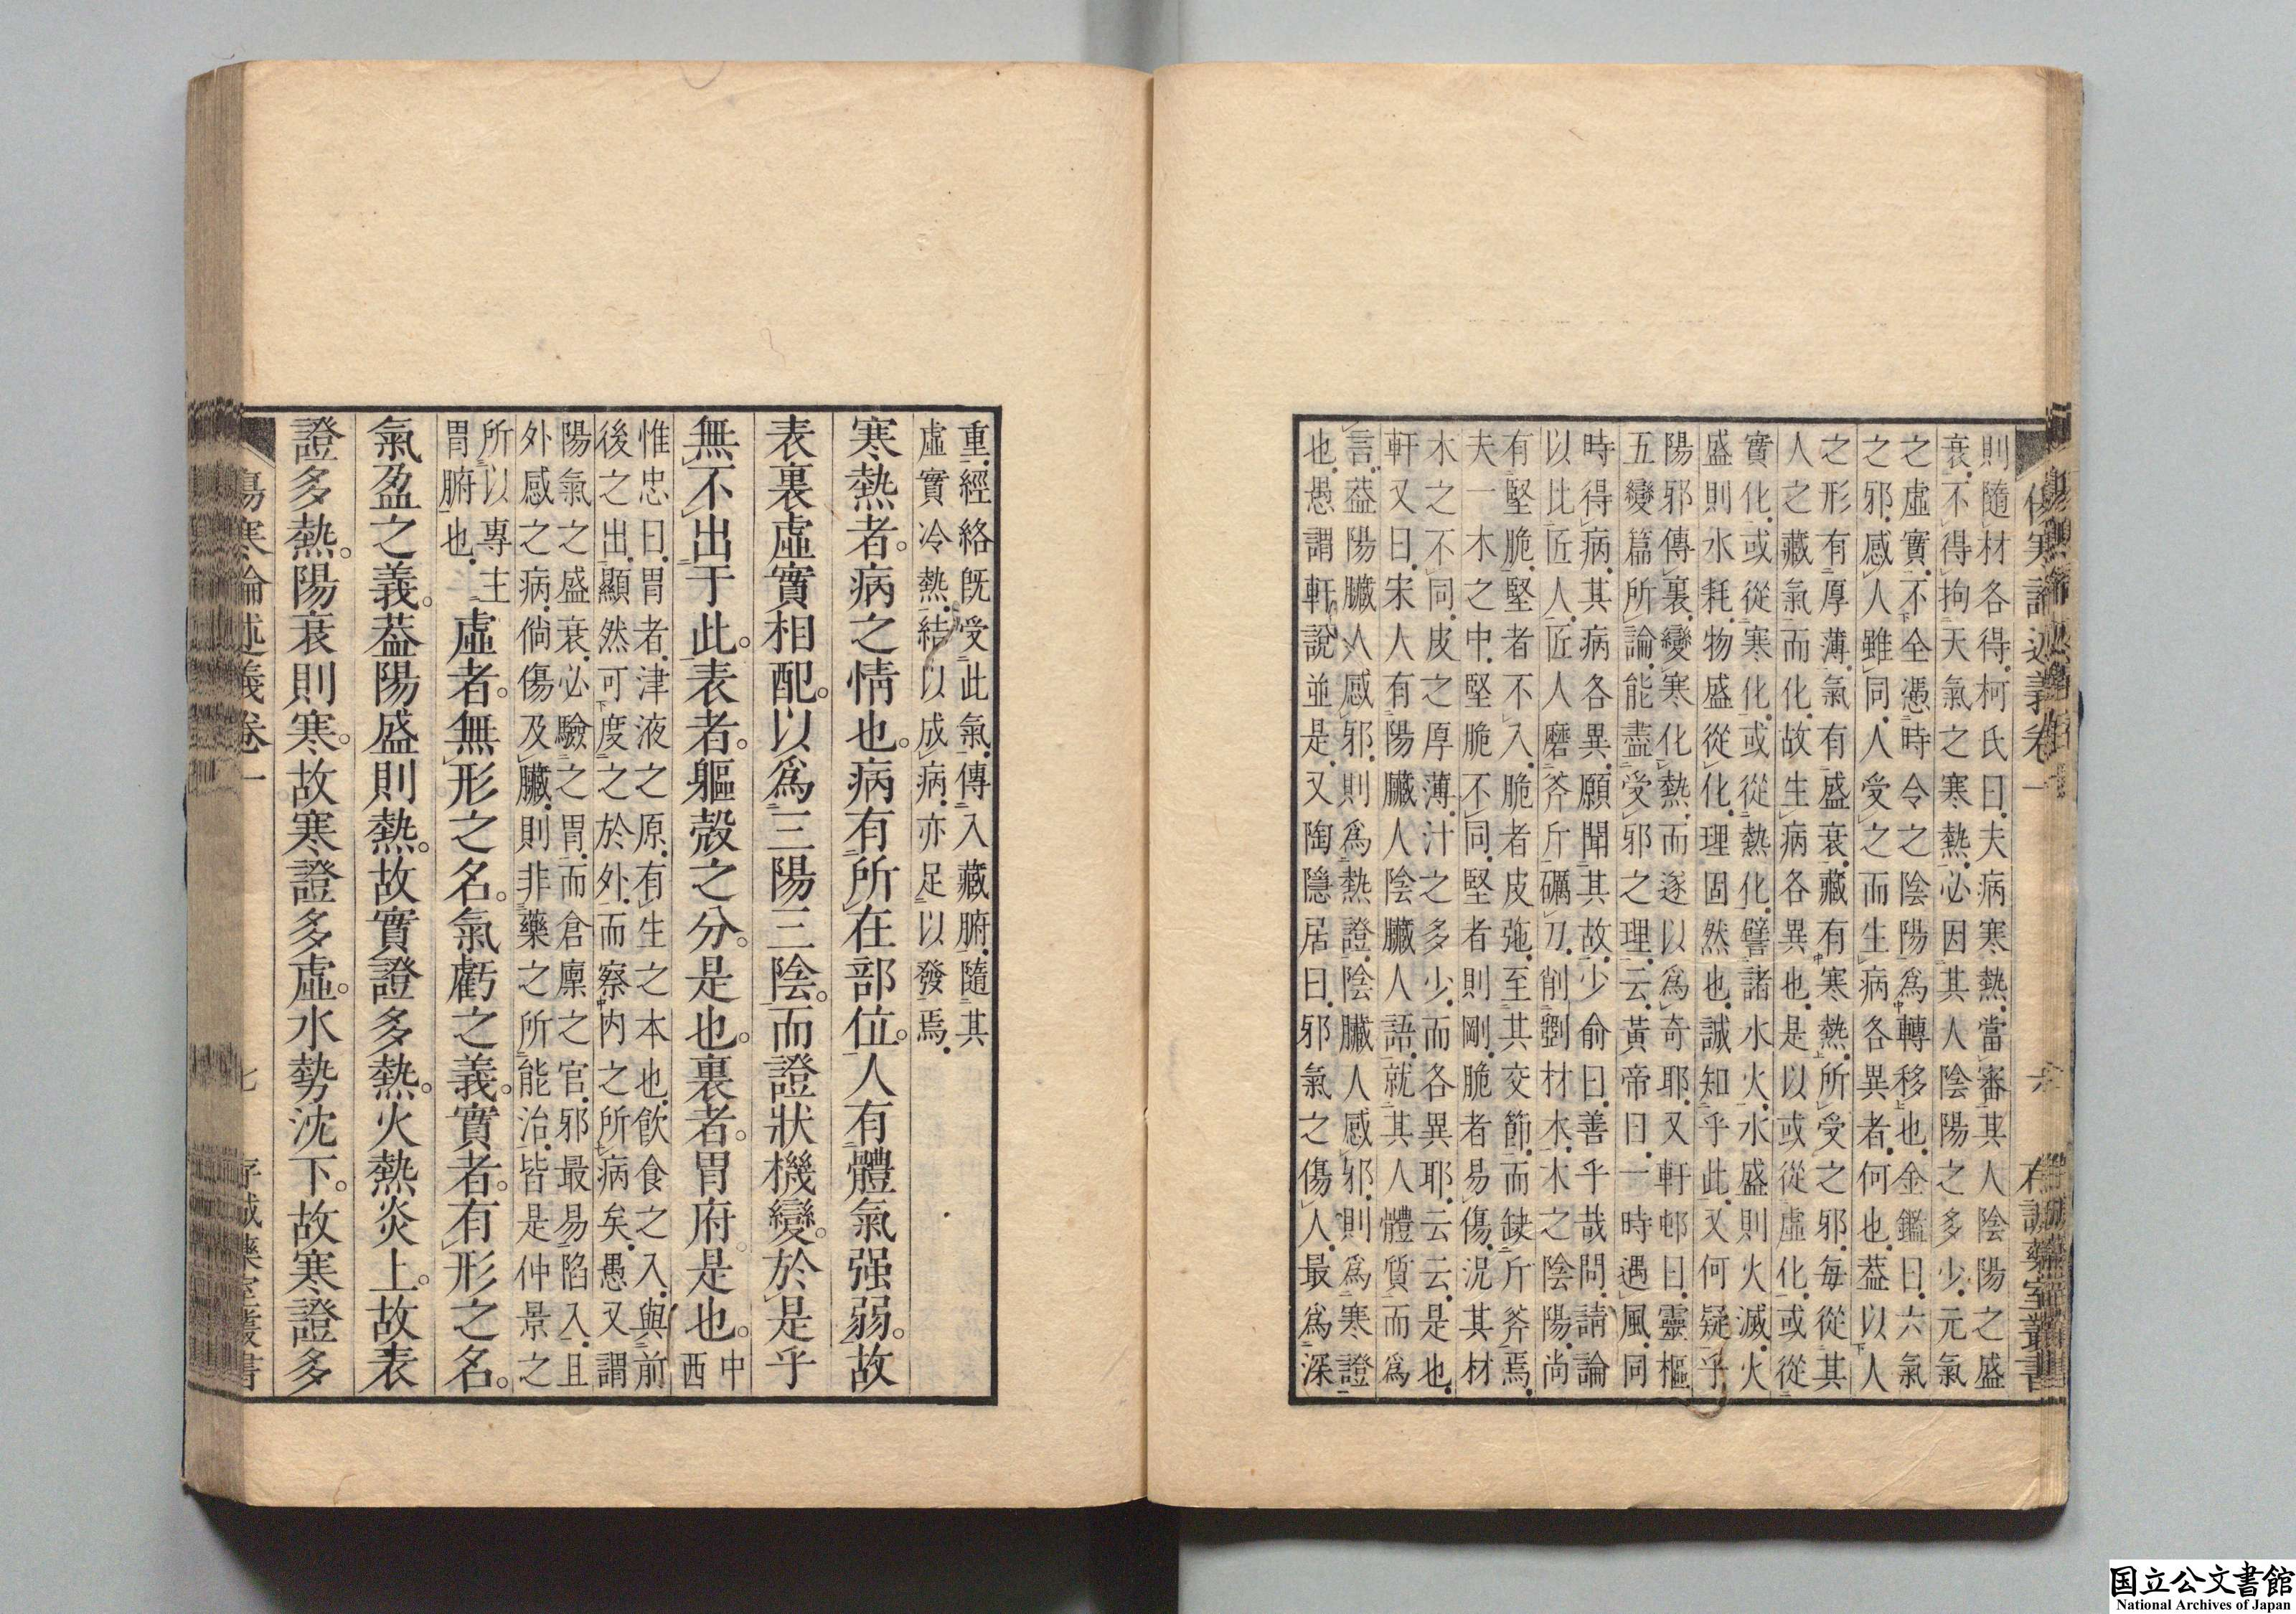 則隨材各得柯氏曰夫病寒熱當審其人陰陽之盛
衰不得拘天氣之寒熱必因其人陰陽之多少元氣
之虛實不全憑時令之陰陽爲轉移也金鑑曰六氣
之邪感人雖同人受之而生病各異者何也蓋以人
之形有厚薄氣有盛衰藏有寒熱所受之邪每從其
人之藏氣而化故生病各異也是以或從虛化或從
實化或從寒化或從熱化譬諸水火水盛則火滅火
盛則水耗物盛從化理固然也誠知乎此又何疑乎
陽邪傳裏變寒化熱而遂以爲奇耶又軒邨曰靈樞
五變篇所論能盡受邪之理云黃帝曰一時遇風同
時得病其病各異願聞其故少俞曰善乎哉問請論
以比匠人匠人磨斧斤礪刀削斲材木木之陰陽尚
有堅脆堅者不入脆者皮弛至其交節而缺斤斧焉
夫一木之中堅脆不同堅者則剛脆者易傷況其材
木之不同皮之厚薄汁之多少而各異耶云云是也
軒又曰宋人有陽臟人陰臟人語就其人體質而爲
言蓋陽臟人感邪則爲熱證陰臟人感邪則爲寒證
也愚謂軒說並是又陶隱居曰邪氣之傷人最爲深
重經絡旣受此氣傳入藏腑隨其
虛實冷熱結以成病亦足以發焉
寒熱者病之情也病有所在部位人有體氣强弱故
表裏虛實相配以爲三陽三陰而證狀機變於是乎
無不出于此表者軀殼之分是也裏者胃府是也中西
惟忠曰胃者津液之原有生之本也飲食之入與前
後之出顯然可度之於外而察內之所病矣愚又謂
陽氣之盛衰必驗之胃而倉廩之官邪最易陷入且
外感之病倘傷及臟則非藥之所能治皆是仲景之
所以專主
胃腑也
虛者無形之名氣虧之義實者有形之名
氣盈之義蓋陽盛則熱故實證多熱火熱炎上故表
證多熱陽衰則寒故寒證多虛水勢沈下故寒證多
傷寒論述義卷一
七
存誠藥室叢書
国立公文書館
National Archives of Japan